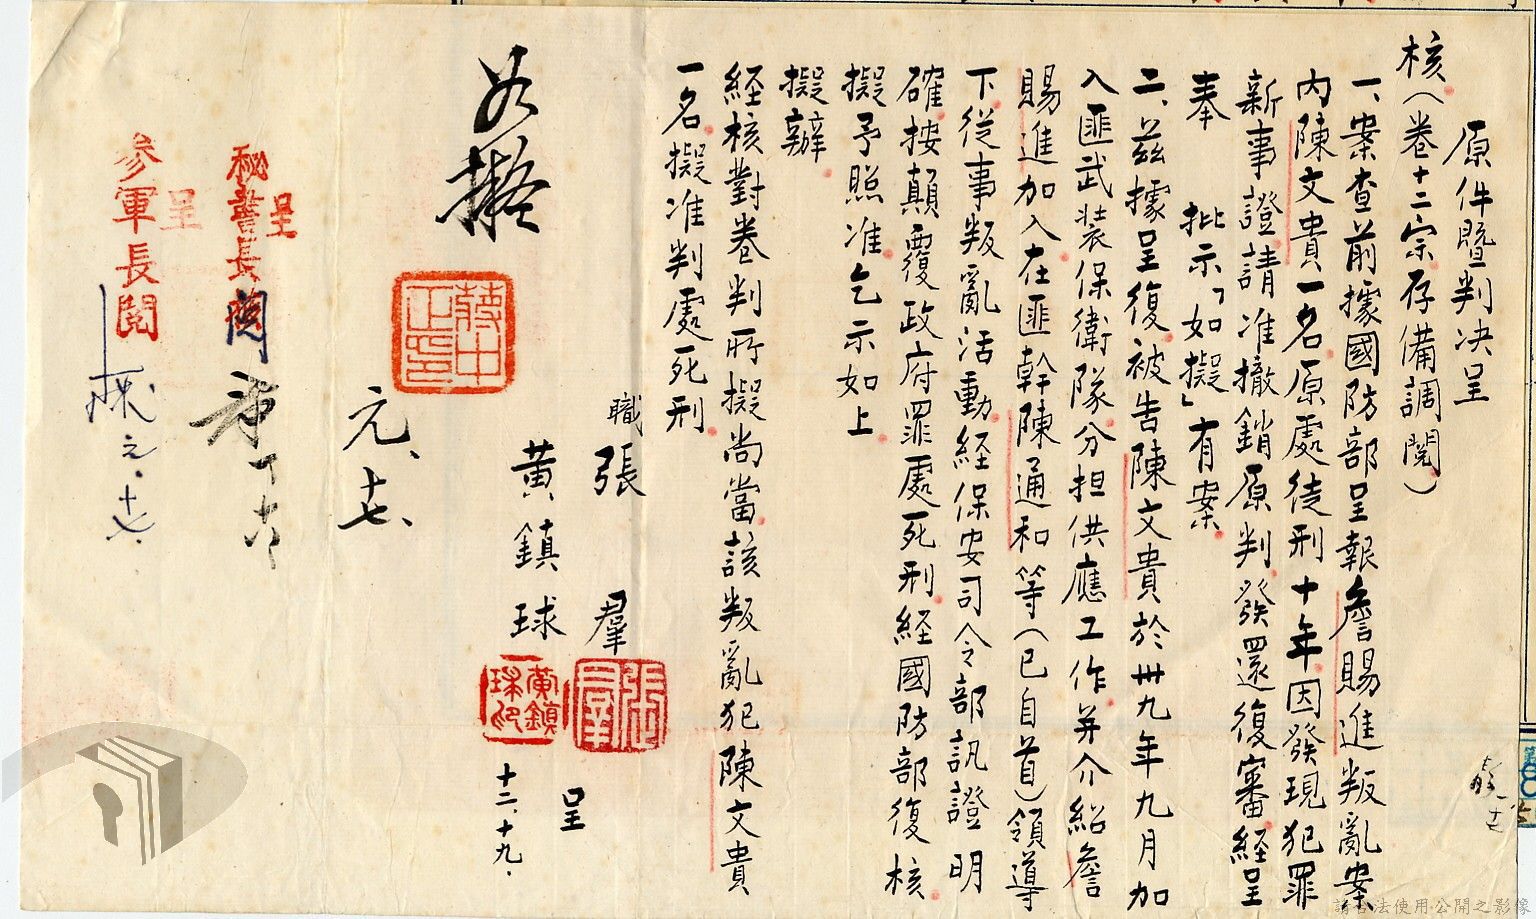 原件暨判决呈
核（卷十二宗存備調閱）
一、案查前據國防部呈報詹賜進叛亂案
內陳文貴一名原處徒刑十年因發現犯罪
新事證請准撤銷原判發還復審經呈
奉　批示「如擬」有案
二、茲據呈復被告陳文貴於卅九年九月加
入匪武装保衛隊分担供應工作並介紹詹
賜進加入在匪幹陳通和等（已自首）領導
下從事叛亂活動経保安司令部訊證明
確按顛覆政府罪處死刑経國防部復核
擬予照准乞示如上
擬辦
経核對卷判所擬尚當該叛亂犯陳文貴
一名擬准判處死刑
職 張 羣 張羣 呈
黃鎮球 黃鎮球印 十二、十九、
如擬
蔣中正印
元、十七、
呈
秘書長閱
呈
參軍長閱
元、十七、
請合法使用公開之影像